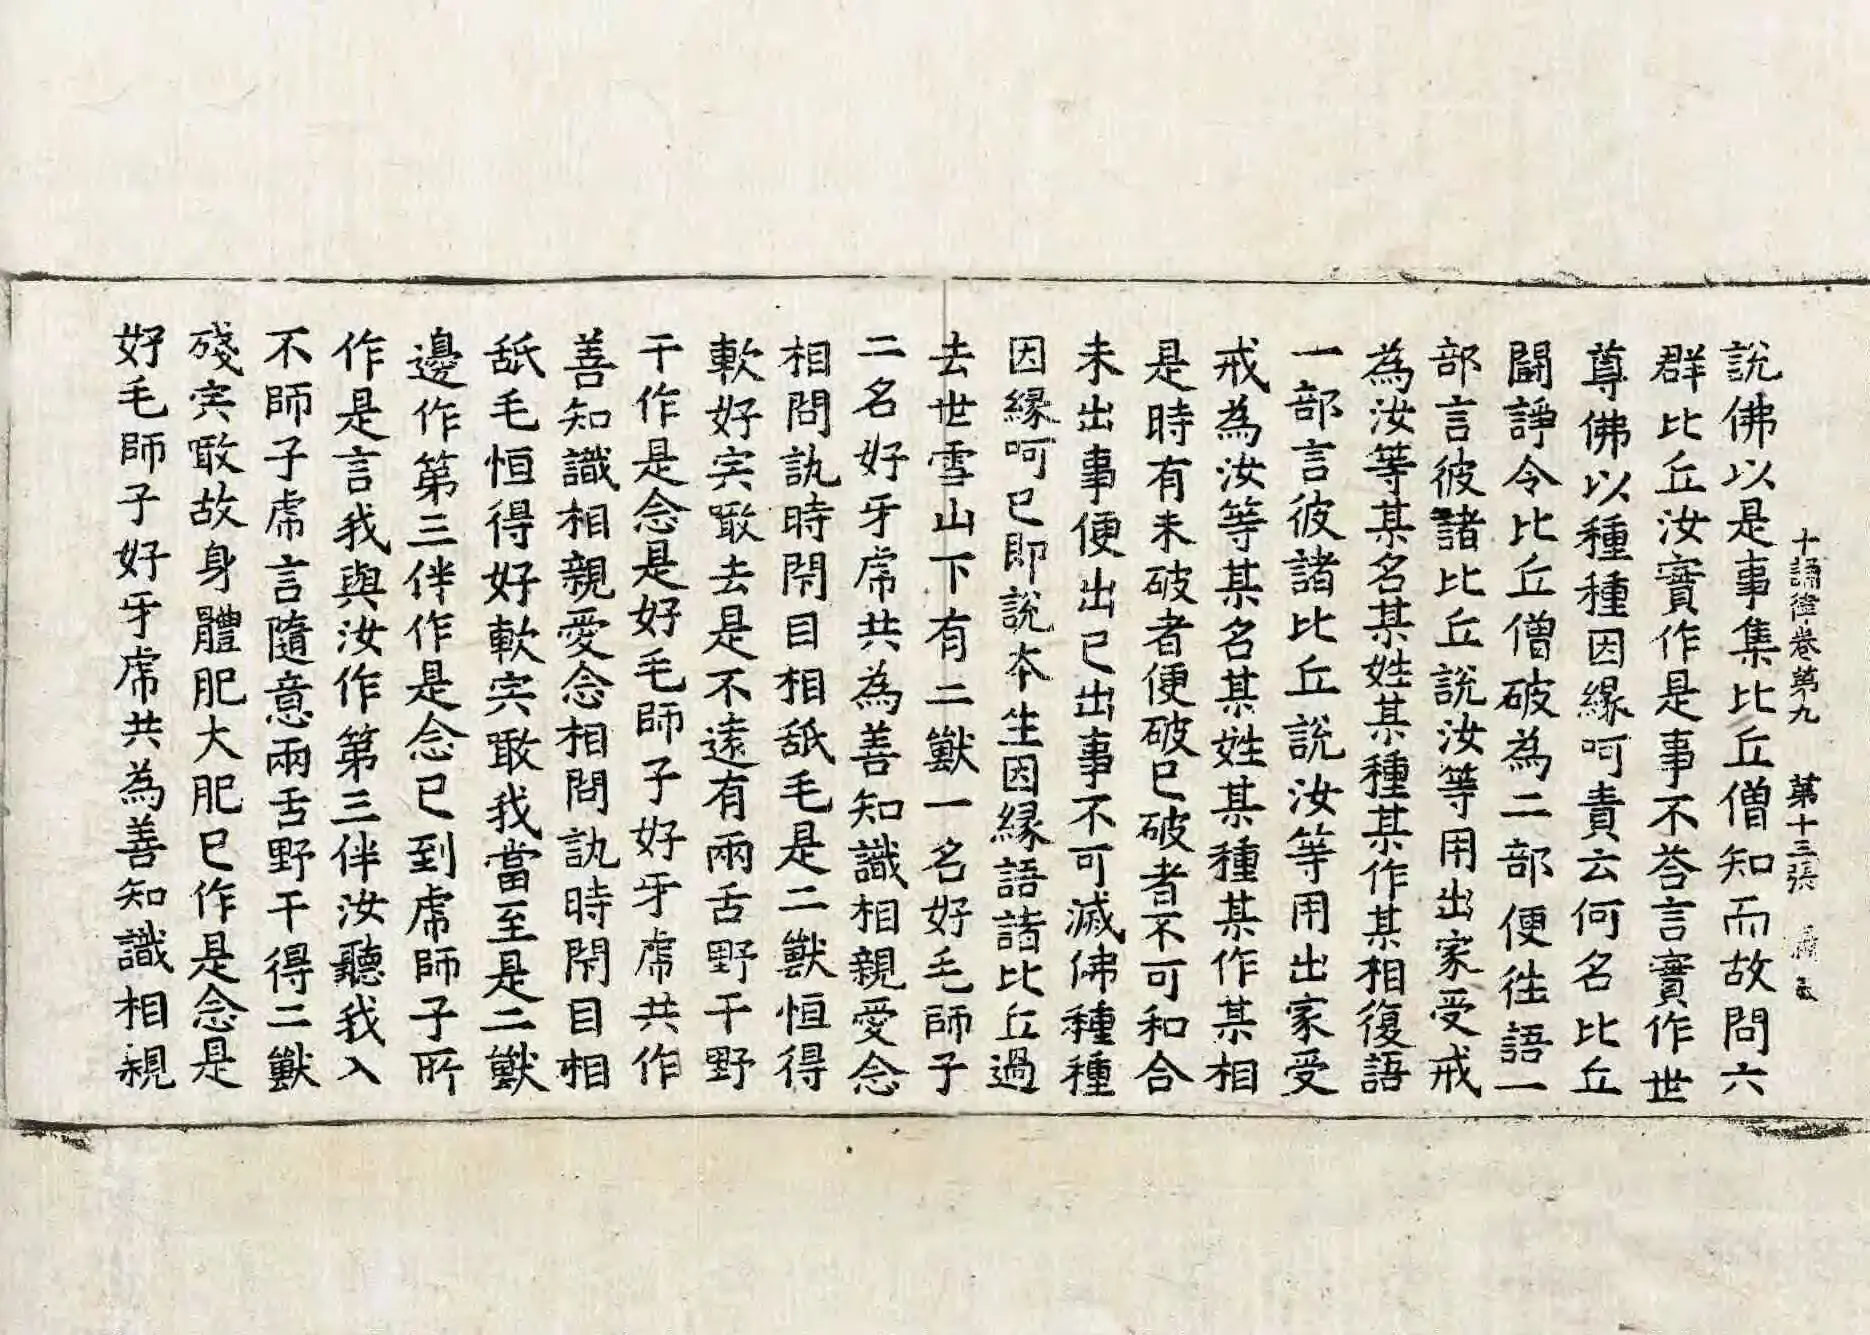 十誦律卷第九 第十三張
說佛以是事集比丘僧知而故問六
群比丘汝實作是事不荅言實作世
尊佛以種種因緣呵責云何名比丘
鬪諍令比丘僧破為二部便徃語一
部言彼諸比丘說汝等用出家受戒
為汝等某名某姓某種某作某相復語
一部言彼諸比丘說汝等用出家受
戒為汝等某名某姓某種某作某相
是時有未破者便破已破者不可和合
未出事便出已出事不可滅佛種種
因緣呵已即說夲生因緣語諸比丘過
去世雪山下有二獸一名好毛師子
二名好牙虎共為善知識相親愛念
相問訊時閇目相舐毛是二獸恒得
軟好宍噉去是不遠有兩舌野干野
干作是念是好毛師子好牙虎共作
善知識相親愛念相問訊時閇目相
舐毛恒得好軟宍噉我當至是二獸
邊作第三伴作是念已到虎師子所
作是言我與汝作第三伴汝聽我入
不師子虎言隨意兩舌野干得二獸
殘宍噉故身體肥大肥已作是念是
好毛師子好牙虎共為善知識相親